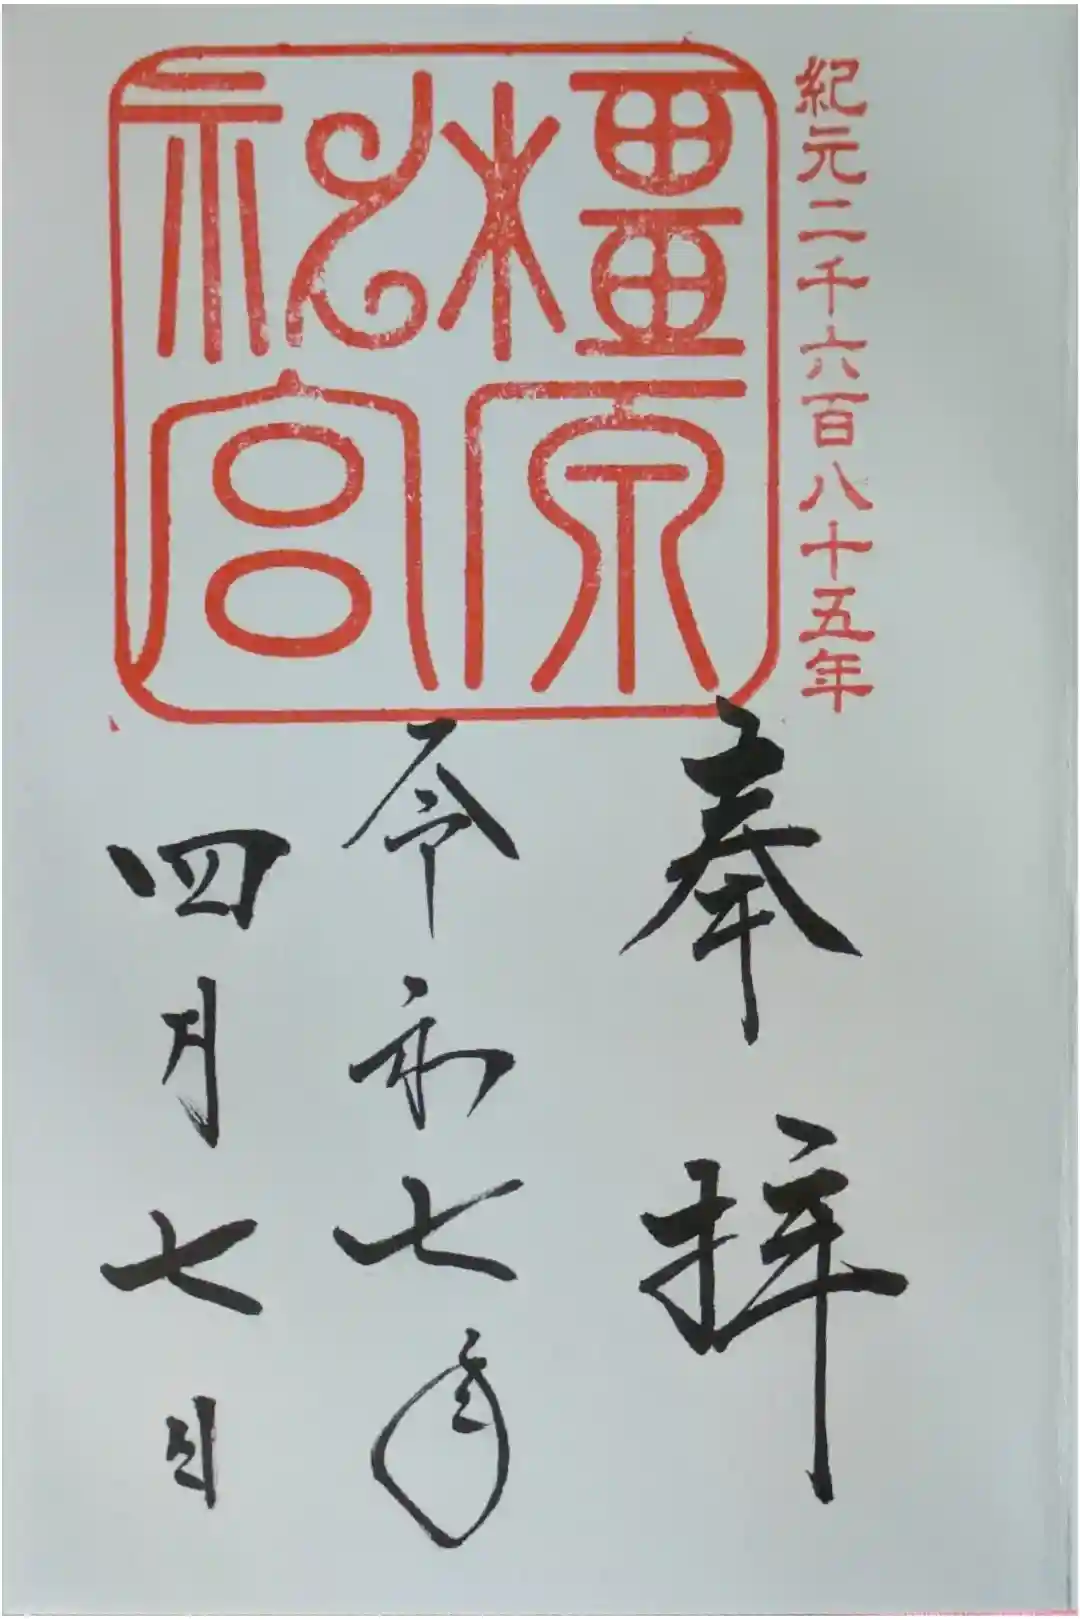 紀元二千六百八十五年
橿原
神宮
奉拝
令和七年
四月七日